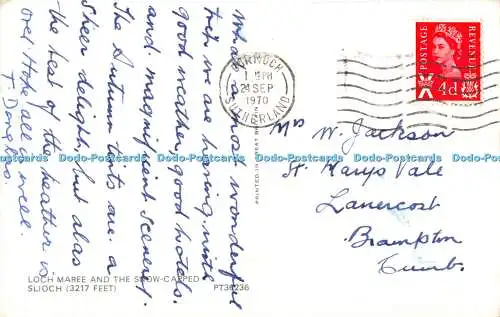 What a most wonderful
trip we are having, with
good weather, good hotels,
and magnificent scenery.
The Autumn tints are a
sheer delight, but alas
the best of the heather is
over. Hope all well.
T. Douglas.
LOCH MAREE AND THE SNOW-CAPPED
SLIOCH (3217 FEET)
PT36236
PRINTED IN GREAT
DORNOCH
PM
21 SEP
1970
SUTHERLAND
POSTAGE
REVENUE
4d
Mrs W. Jackson
St Marys Vale
Lanercost
Brampton
Cumb.
Dodo-Postcards Dodo-Postcards Dodo-Postcards Dodo-Postcards Dodo-Postcards